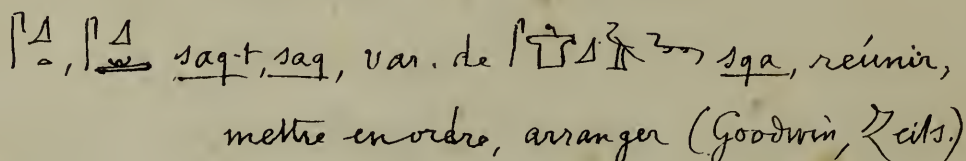 , saq-t, saq, var. de sqa, réunir,
mettre en ordre, arranger (Goodwin, Zeits.)